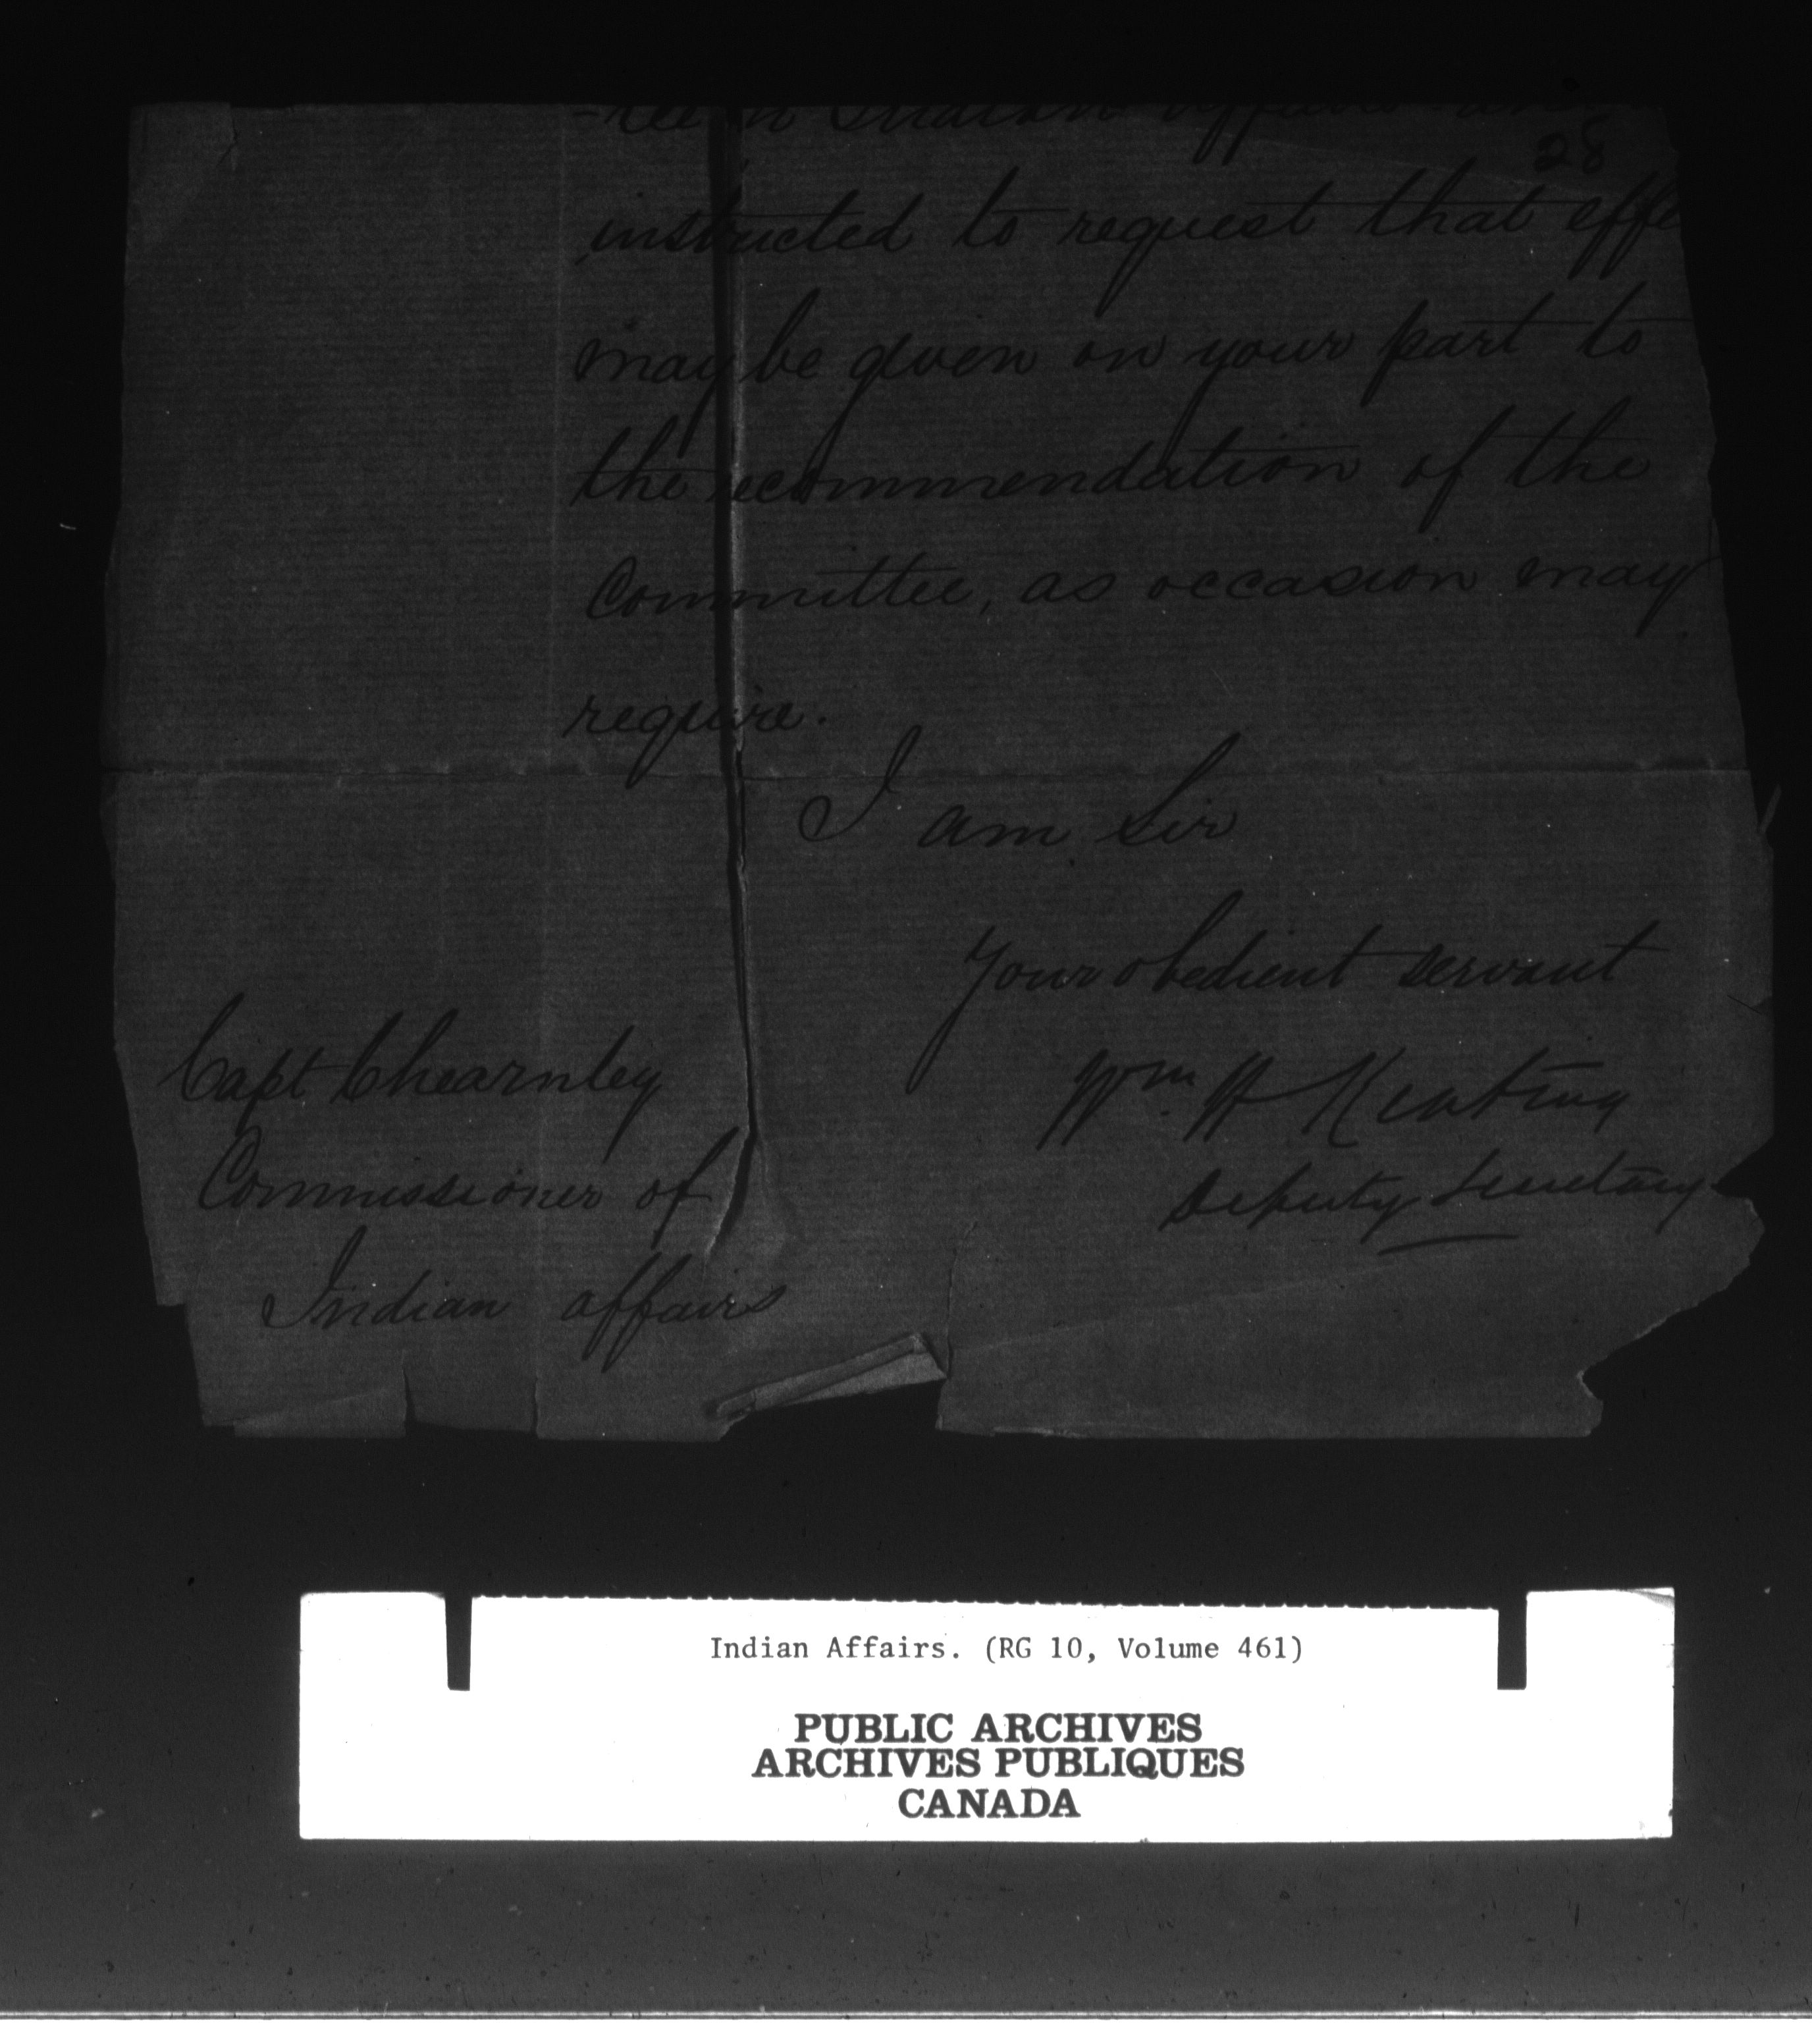 -tee on Indian affairs
28
instructed to request that effe
may be given on your part to
the recommendation of the
Committee, as occasion may
require.
I am Sir
Your obedient servant
Capt Chearnley
Wm. H Keating
Commissioner of
Deputy Secretary
Indian affairs
Indian Affairs. (RG 10, Volume 461)
PUBLIC ARCHIVES
ARCHIVES PUBLIQUES
CANADA